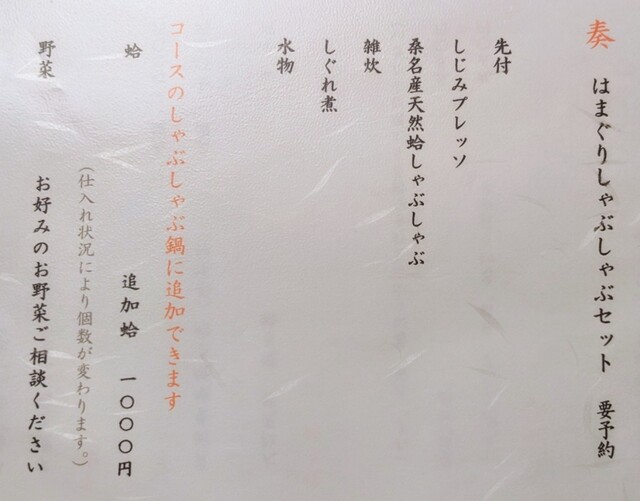 奏 はまぐりしゃぶしゃぶセット 要予約
先付
しじみブレッソ
桑名産天然蛤しゃぶしゃぶ
雑炊
しぐれ煮
水物
コースのしゃぶしゃぶ鍋に追加できます
蛤 追加蛤 一〇〇〇円
（仕入れ状況により個数が変わります。）
野菜 お好みのお野菜ご相談ください